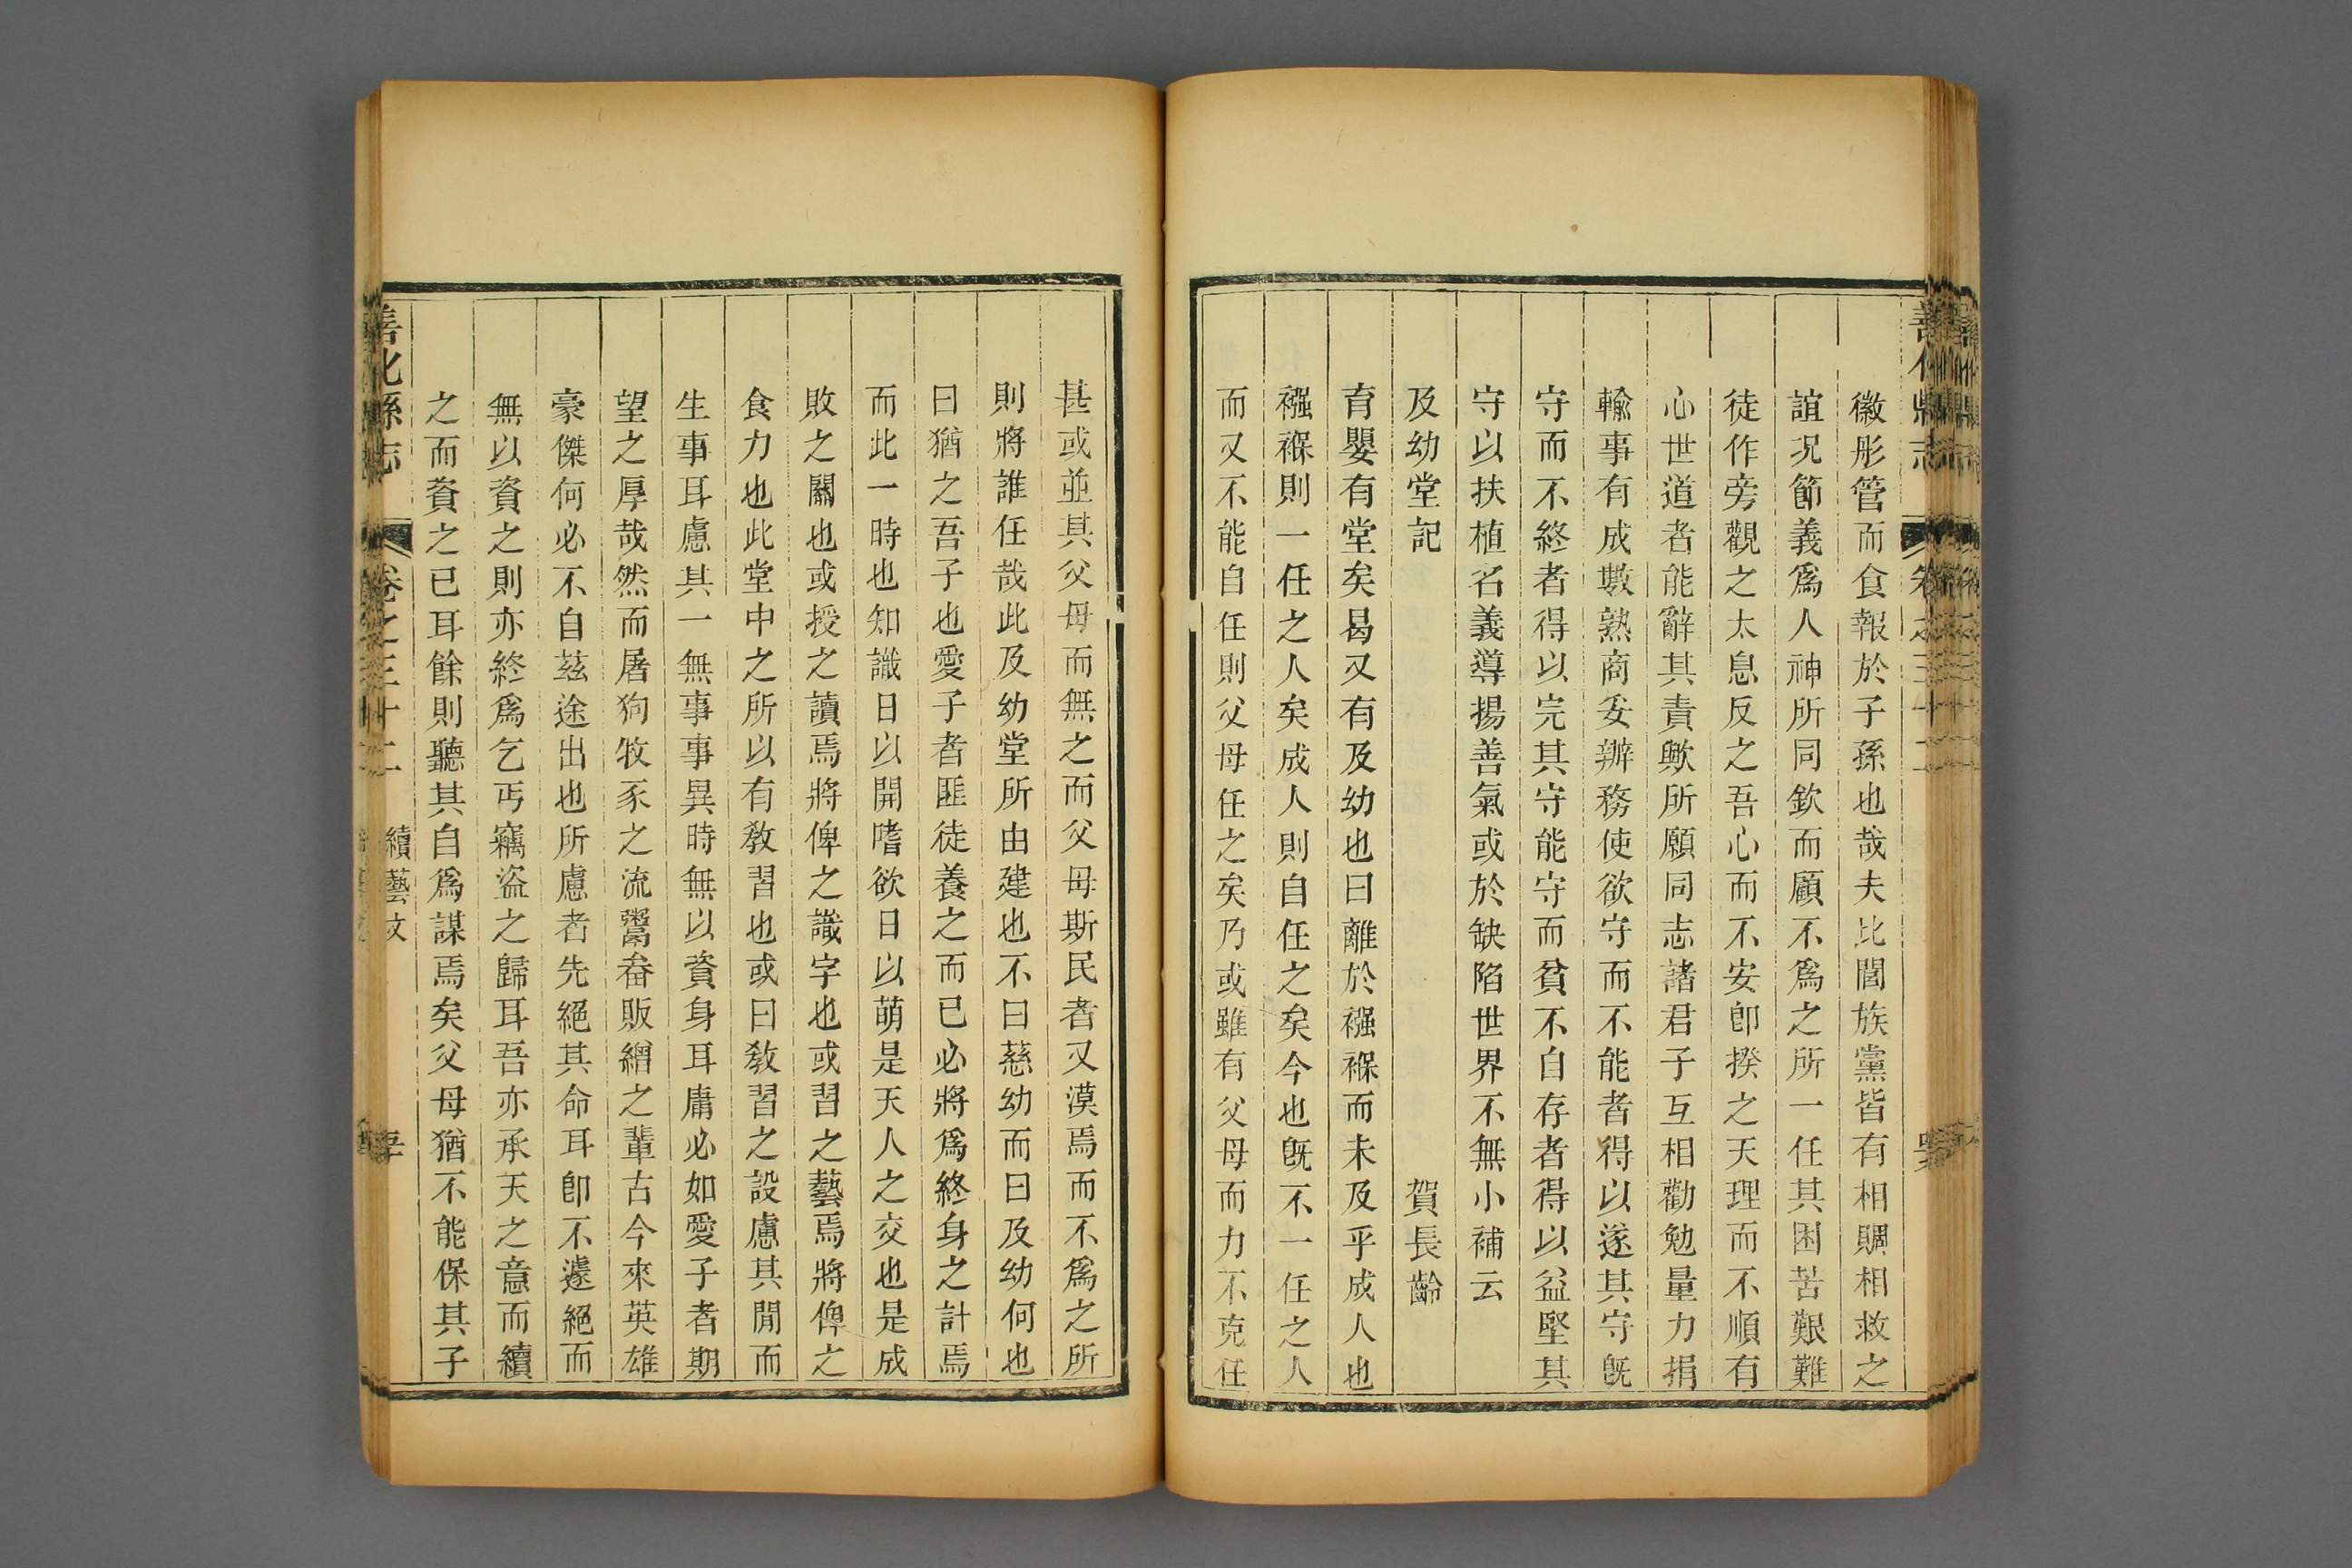 徽彤管而食報於子孫也哉夫比閭族黨皆有相賙相救之
誼况節義爲人神所同欽而顧不爲之所一任其困苦艱難
徒作旁觀之太息反之吾心而不安卽揆之天理而不順有
心世道者能辭其責歟所願同志諸君子互相勸勉量力捐
輸事有成數熟商妥辦務使欲守而不能者得以遂其守旣
守而不終者得以完其守能守而貧不自存者得以益堅其
守以扶植名義導揚善氣或於缺陷世界不無小補云
及幼堂記 賀長齡
育嬰有堂矣曷又有及幼也曰離於襁褓而未及乎成人也
襁褓則一任之人矣成人則自任之矣今也旣不一任之人
而又不能自任則父母任之矣乃或雖有父母而力不克任
甚或並其父母而無之而父母斯民者又漠焉而不爲之所
則將誰任哉此及幼堂所由建也不曰慈幼而曰及幼何也
曰猶之吾子也愛子者匪徒養之而已必將爲終身之計焉
而此一時也知識日以開嗜欲日以萌是天人之交也是成
敗之關也或授之讀焉將俾之識字也或習之藝焉將俾之
食力也此堂中之所以有教習也或曰教習之設慮其閒而
生事耳慮其一無事事異時無以資身耳庸必如愛子者期
望之厚哉然而屠狗牧豕之流鬻畚販繒之輩古今來英雄
豪傑何必不自茲途出也所慮者先絕其命耳卽不遽絕而
無以資之則亦終爲乞丐竊盜之歸耳吾亦承天之意而續
之而資之已耳餘則聽其自爲謀焉矣父母猶不能保其子
善化縣志 卷之三十二 續藝文